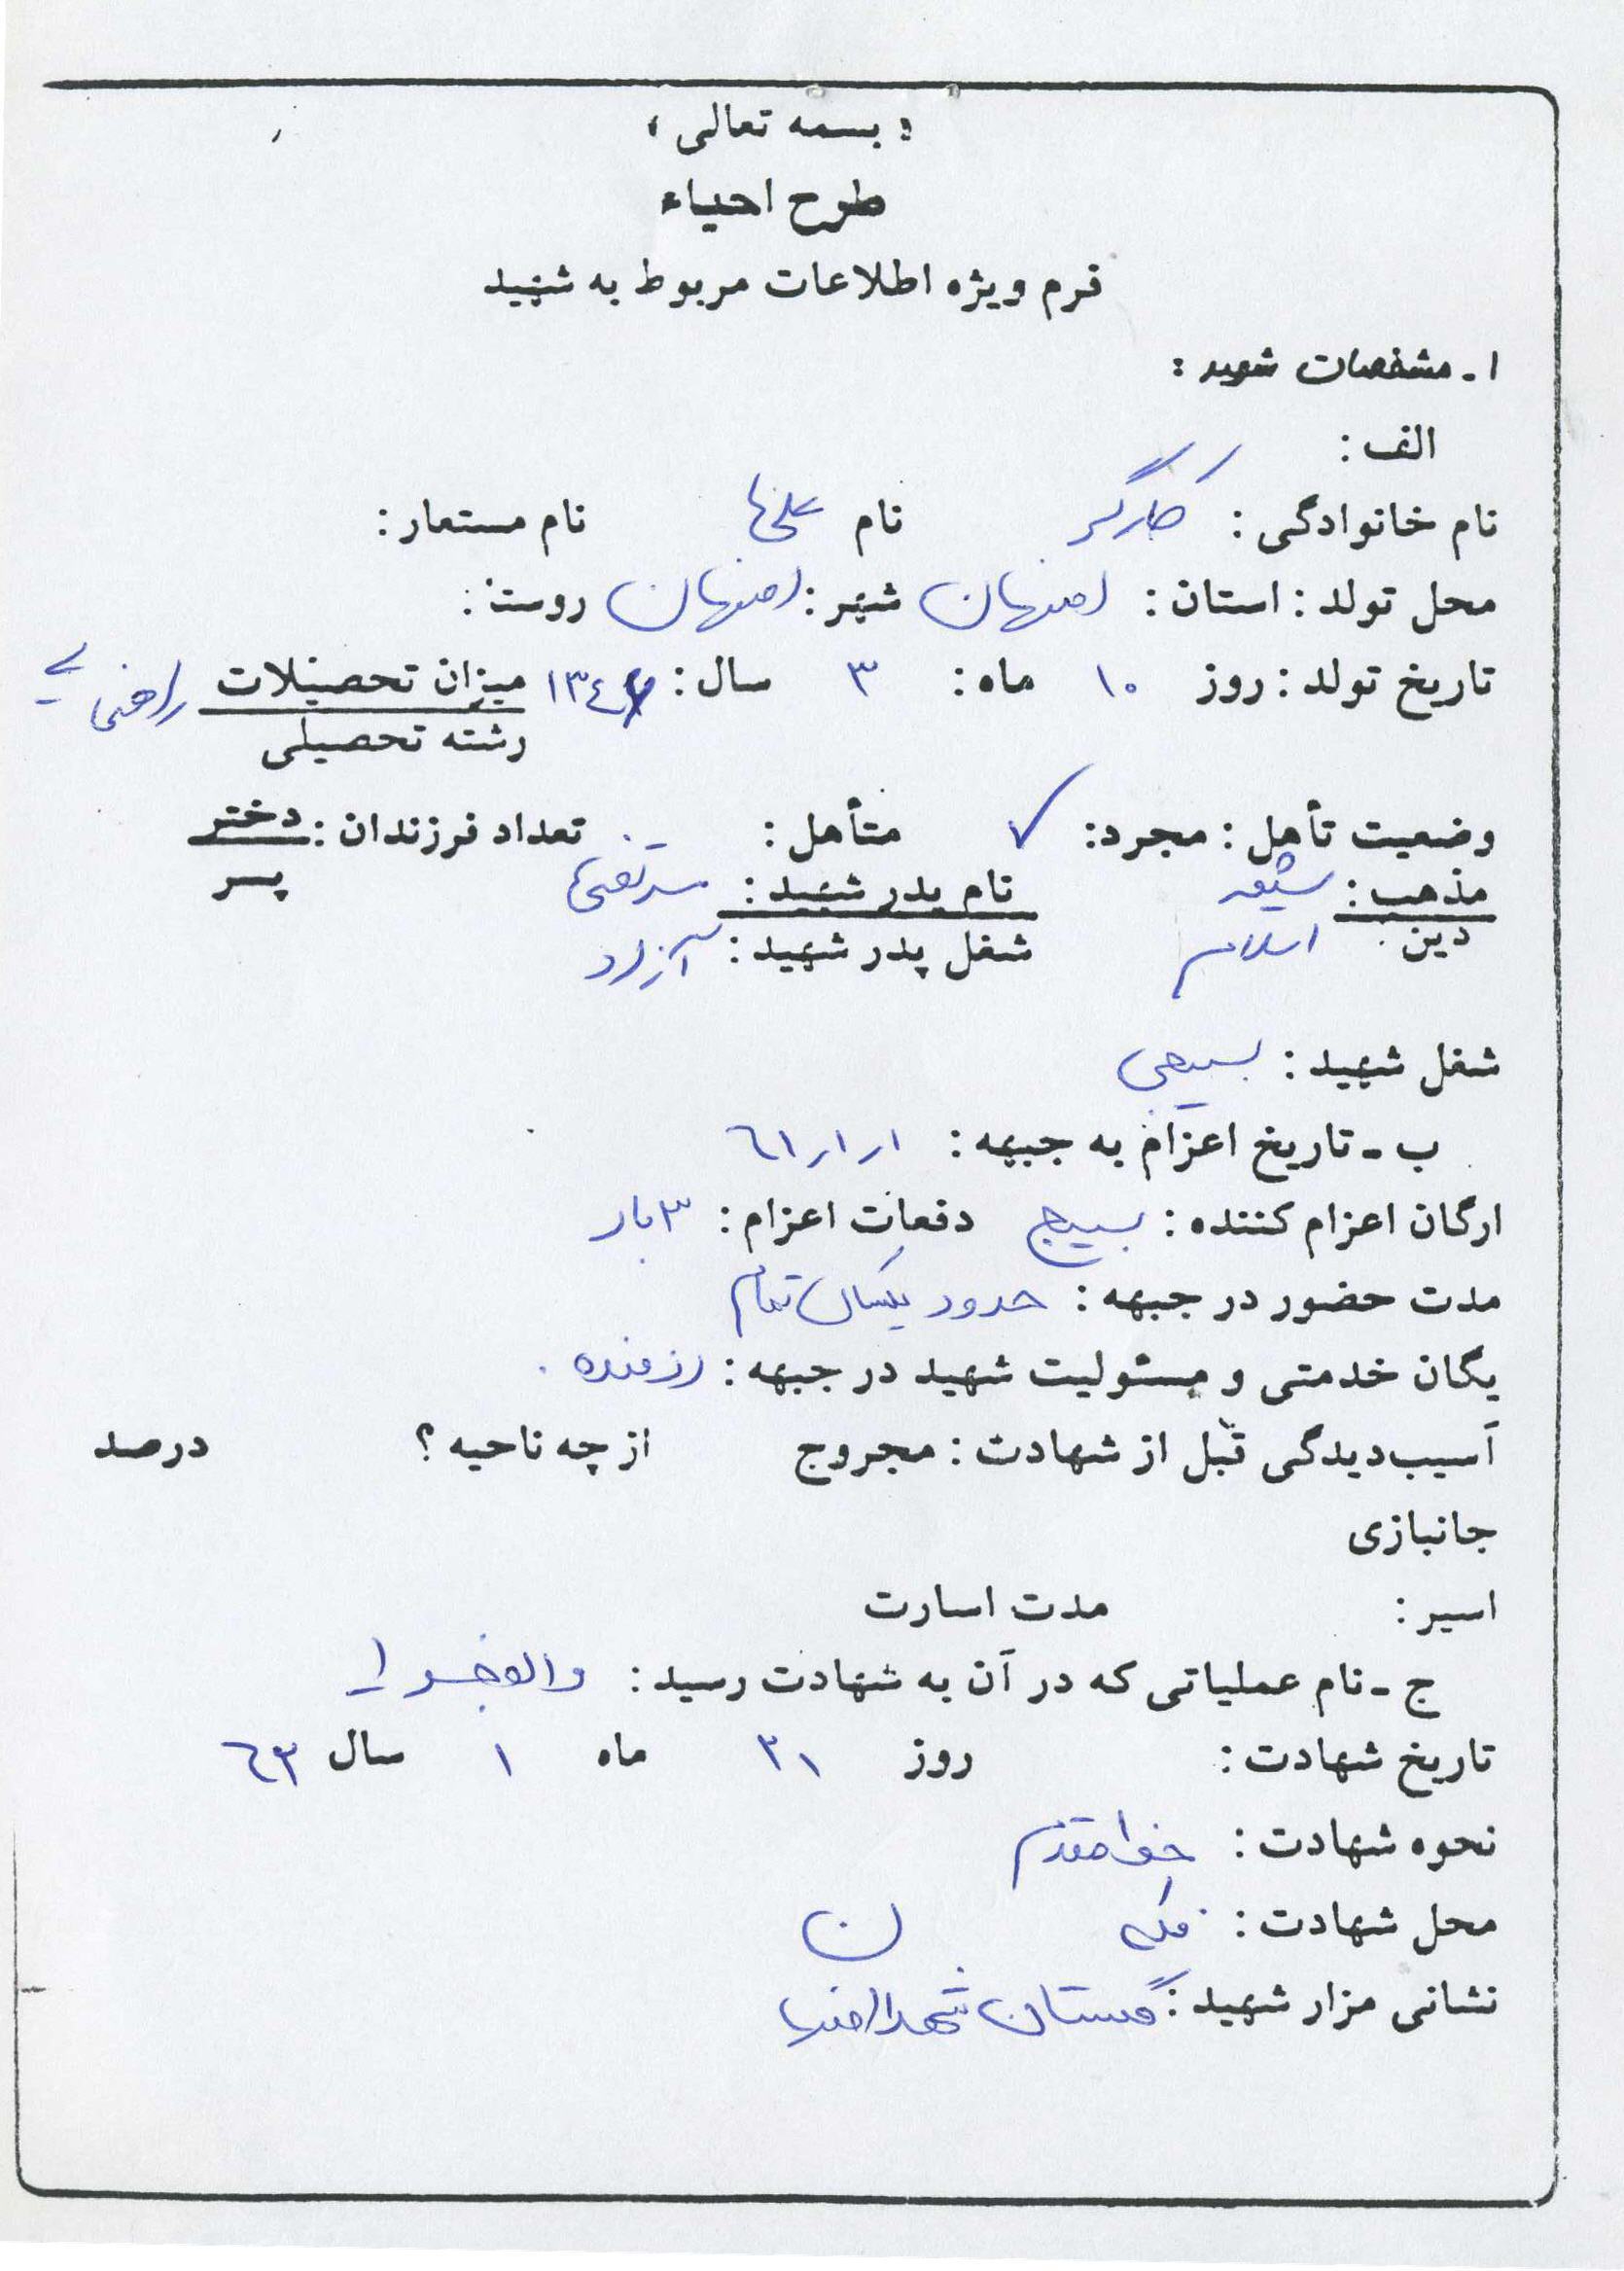 « بسمه تعالی »
طرح احیاء
فرم ویژه اطلاعات مربوط به شهید
۱ـ مشخصات شهید :
الف :
نام خانوادگی : کارگر نام نام مستعار :
محل تولد : استان : اصفهان شهر : اصفهان روستا :
تاریخ تولد : روز ۱۰ ماه : ۳ سال : میزان تحصیلات راهنمایی
رشته تحصیلی
وضعیت تأهل : مجرد : ✓ متأهل : تعداد فرزندان : دختر
پسر
مذهب : شیعه نام پدر شهید : مرتضی
دین : اسلام شغل پدر شهید : آزاد
شغل شهید : بسیجی
ب ـ تاریخ اعزام به جبهه : ۶۱/۱/۱
ارگان اعزام کننده : بسیج دفعات اعزام : ۳ بار
مدت حضور در جبهه : حدود یکسال تمام
یگان خدمتی و مسئولیت شهید در جبهه : رزمنده .
آسیب‌دیدگی قبل از شهادت : مجروح از چه ناحیه ؟ درصد
جانبازی
اسیر : مدت اسارت
ج ـ نام عملیاتی که در آن به شهادت رسید : والفجر ۱
تاریخ شهادت : روز ۲۱ ماه ۱ سال ۶۳
نحوه شهادت : خط مقدم
محل شهادت : فکه
نشانی مزار شهید : گلستان شهدا اصفهان